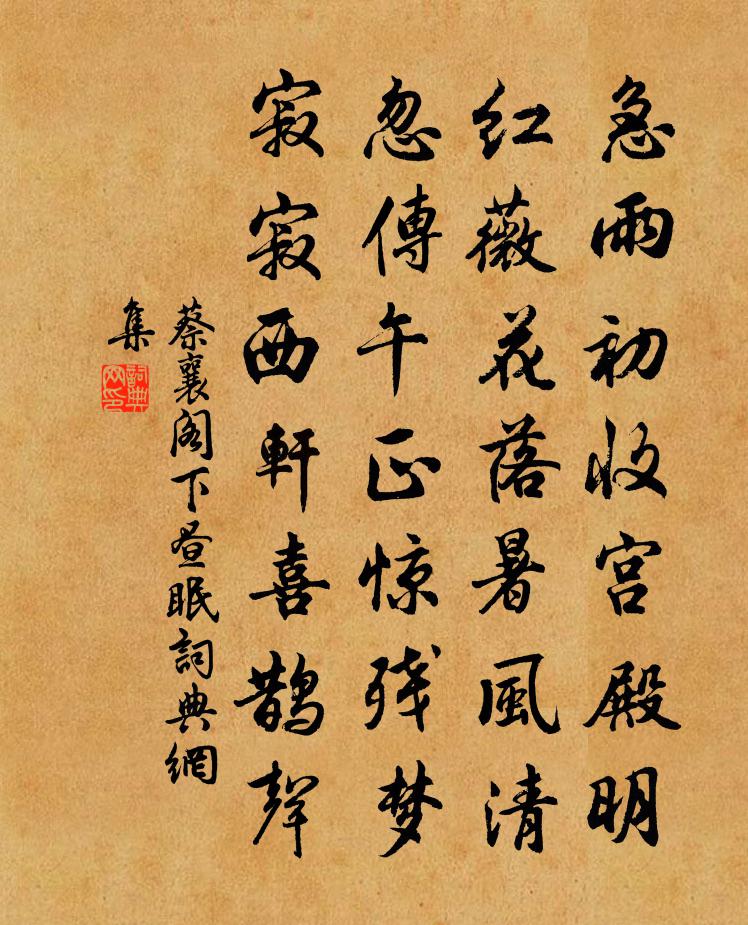 急雨初收宫殿明
红薇花落暑風清
忽傳午正惊残梦
寂寂西軒喜鹊聲
蔡襄阁下昼眠詞典網
集
詞典网印